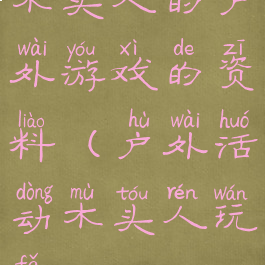 木头人的户
wài yóu xì de zī
外游戏的资
liào hù wài huó
料（户外活
dòng mù tóu rén wán
动木头人玩
fǎ